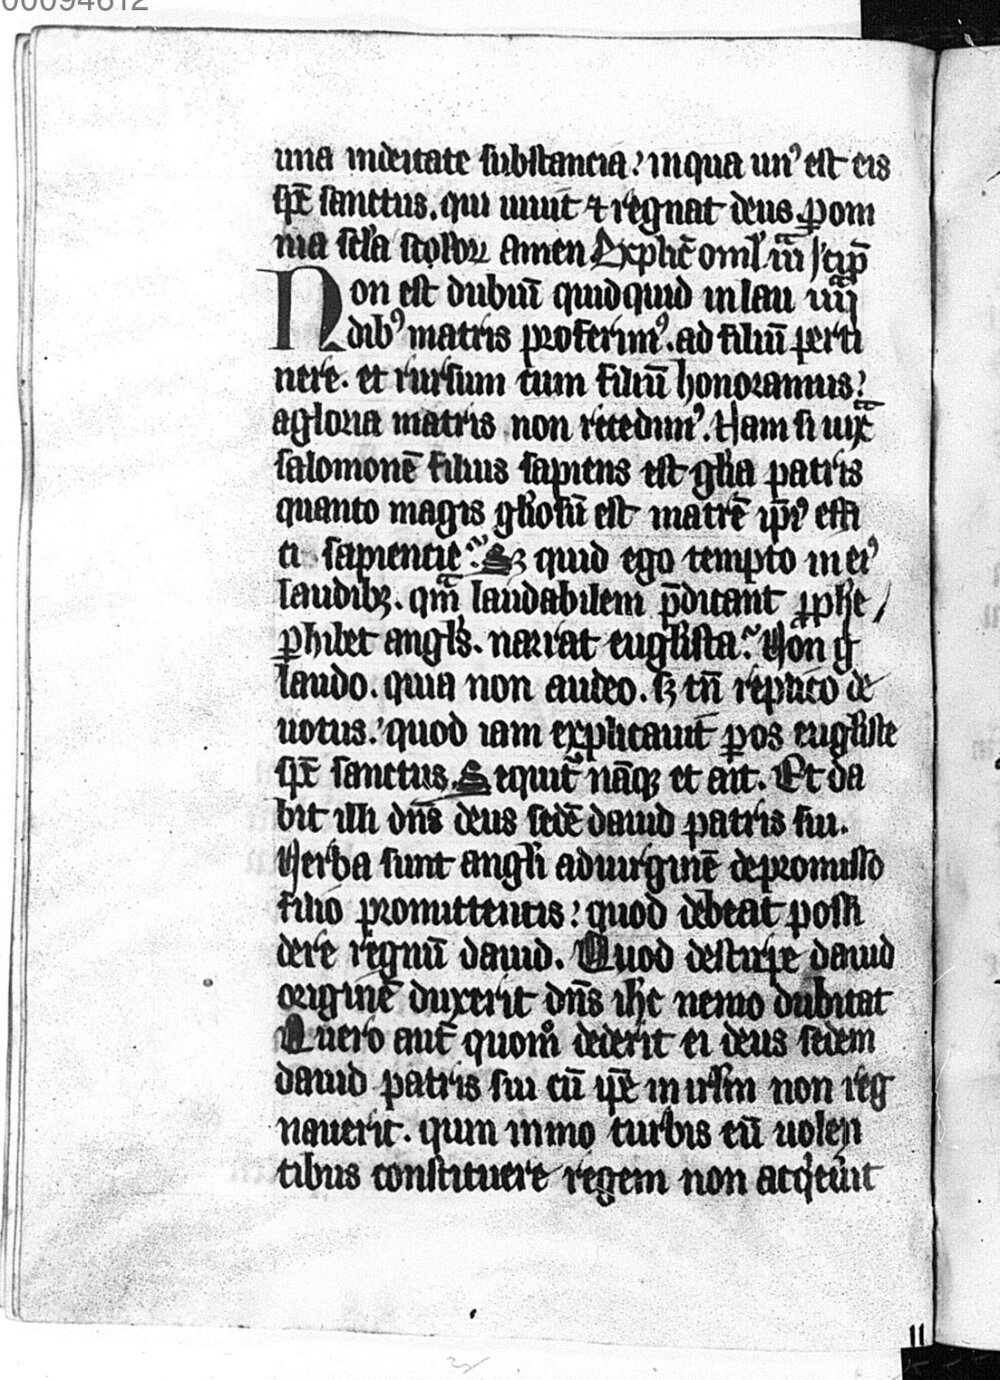 00094612
una indeitate substancia? inqua un⁹ est eis
sp̄c sanctus. qui uiuit ⁊ regnat deus ꝑ om
nia scl̄a sclo̧ꝝ Amen Explic̄ oml̄. iiiᵃ Incip̄
Non est dubiū quidquid inlau iiijᵃ
dib⁹ matris proferim⁹. ad filiū perti
nere. et rursum cum filiū honoramus?
agloria matris non recedim⁹. Nam si iuxᵃ
salomonē filius sapiens est gl̄ia patris
quanto magis gl̄iosū est matrē ip̄i⁹ effi
ci sapientie? Sꝫ quid ego tempto in ei⁹
laudibꝫ. qm̄ laudabilem p̄dicant ꝓph̄e /
ꝑhibet angl̄s. narrat eugl̄ista? Nōn g̊
laudo. quia non audeo. sꝫ tn̄ replico de
uotus? quod iam explicauit ꝑ os eugl̄iste
sp̄c sanctus. Sequit̄ nāqꝫ et ait. Et da
bit illi dn̄s deus sedē dauid patris sui.
Verba sunt angl̄i aduirginē depromisso
filio promittentis? quod debeat possi
dere regnū dauid. Quod destirpe dauid
originē duxerit dn̄s ih̄c nemo dubitat
Quero aut̄ quom̊ dederit ei deus sedem
dauid patris sui cū ip̄e in irl̄m non reg
nauerit. quin immo turbis eū uolen
tibus constituere regem non acq̇euit
11